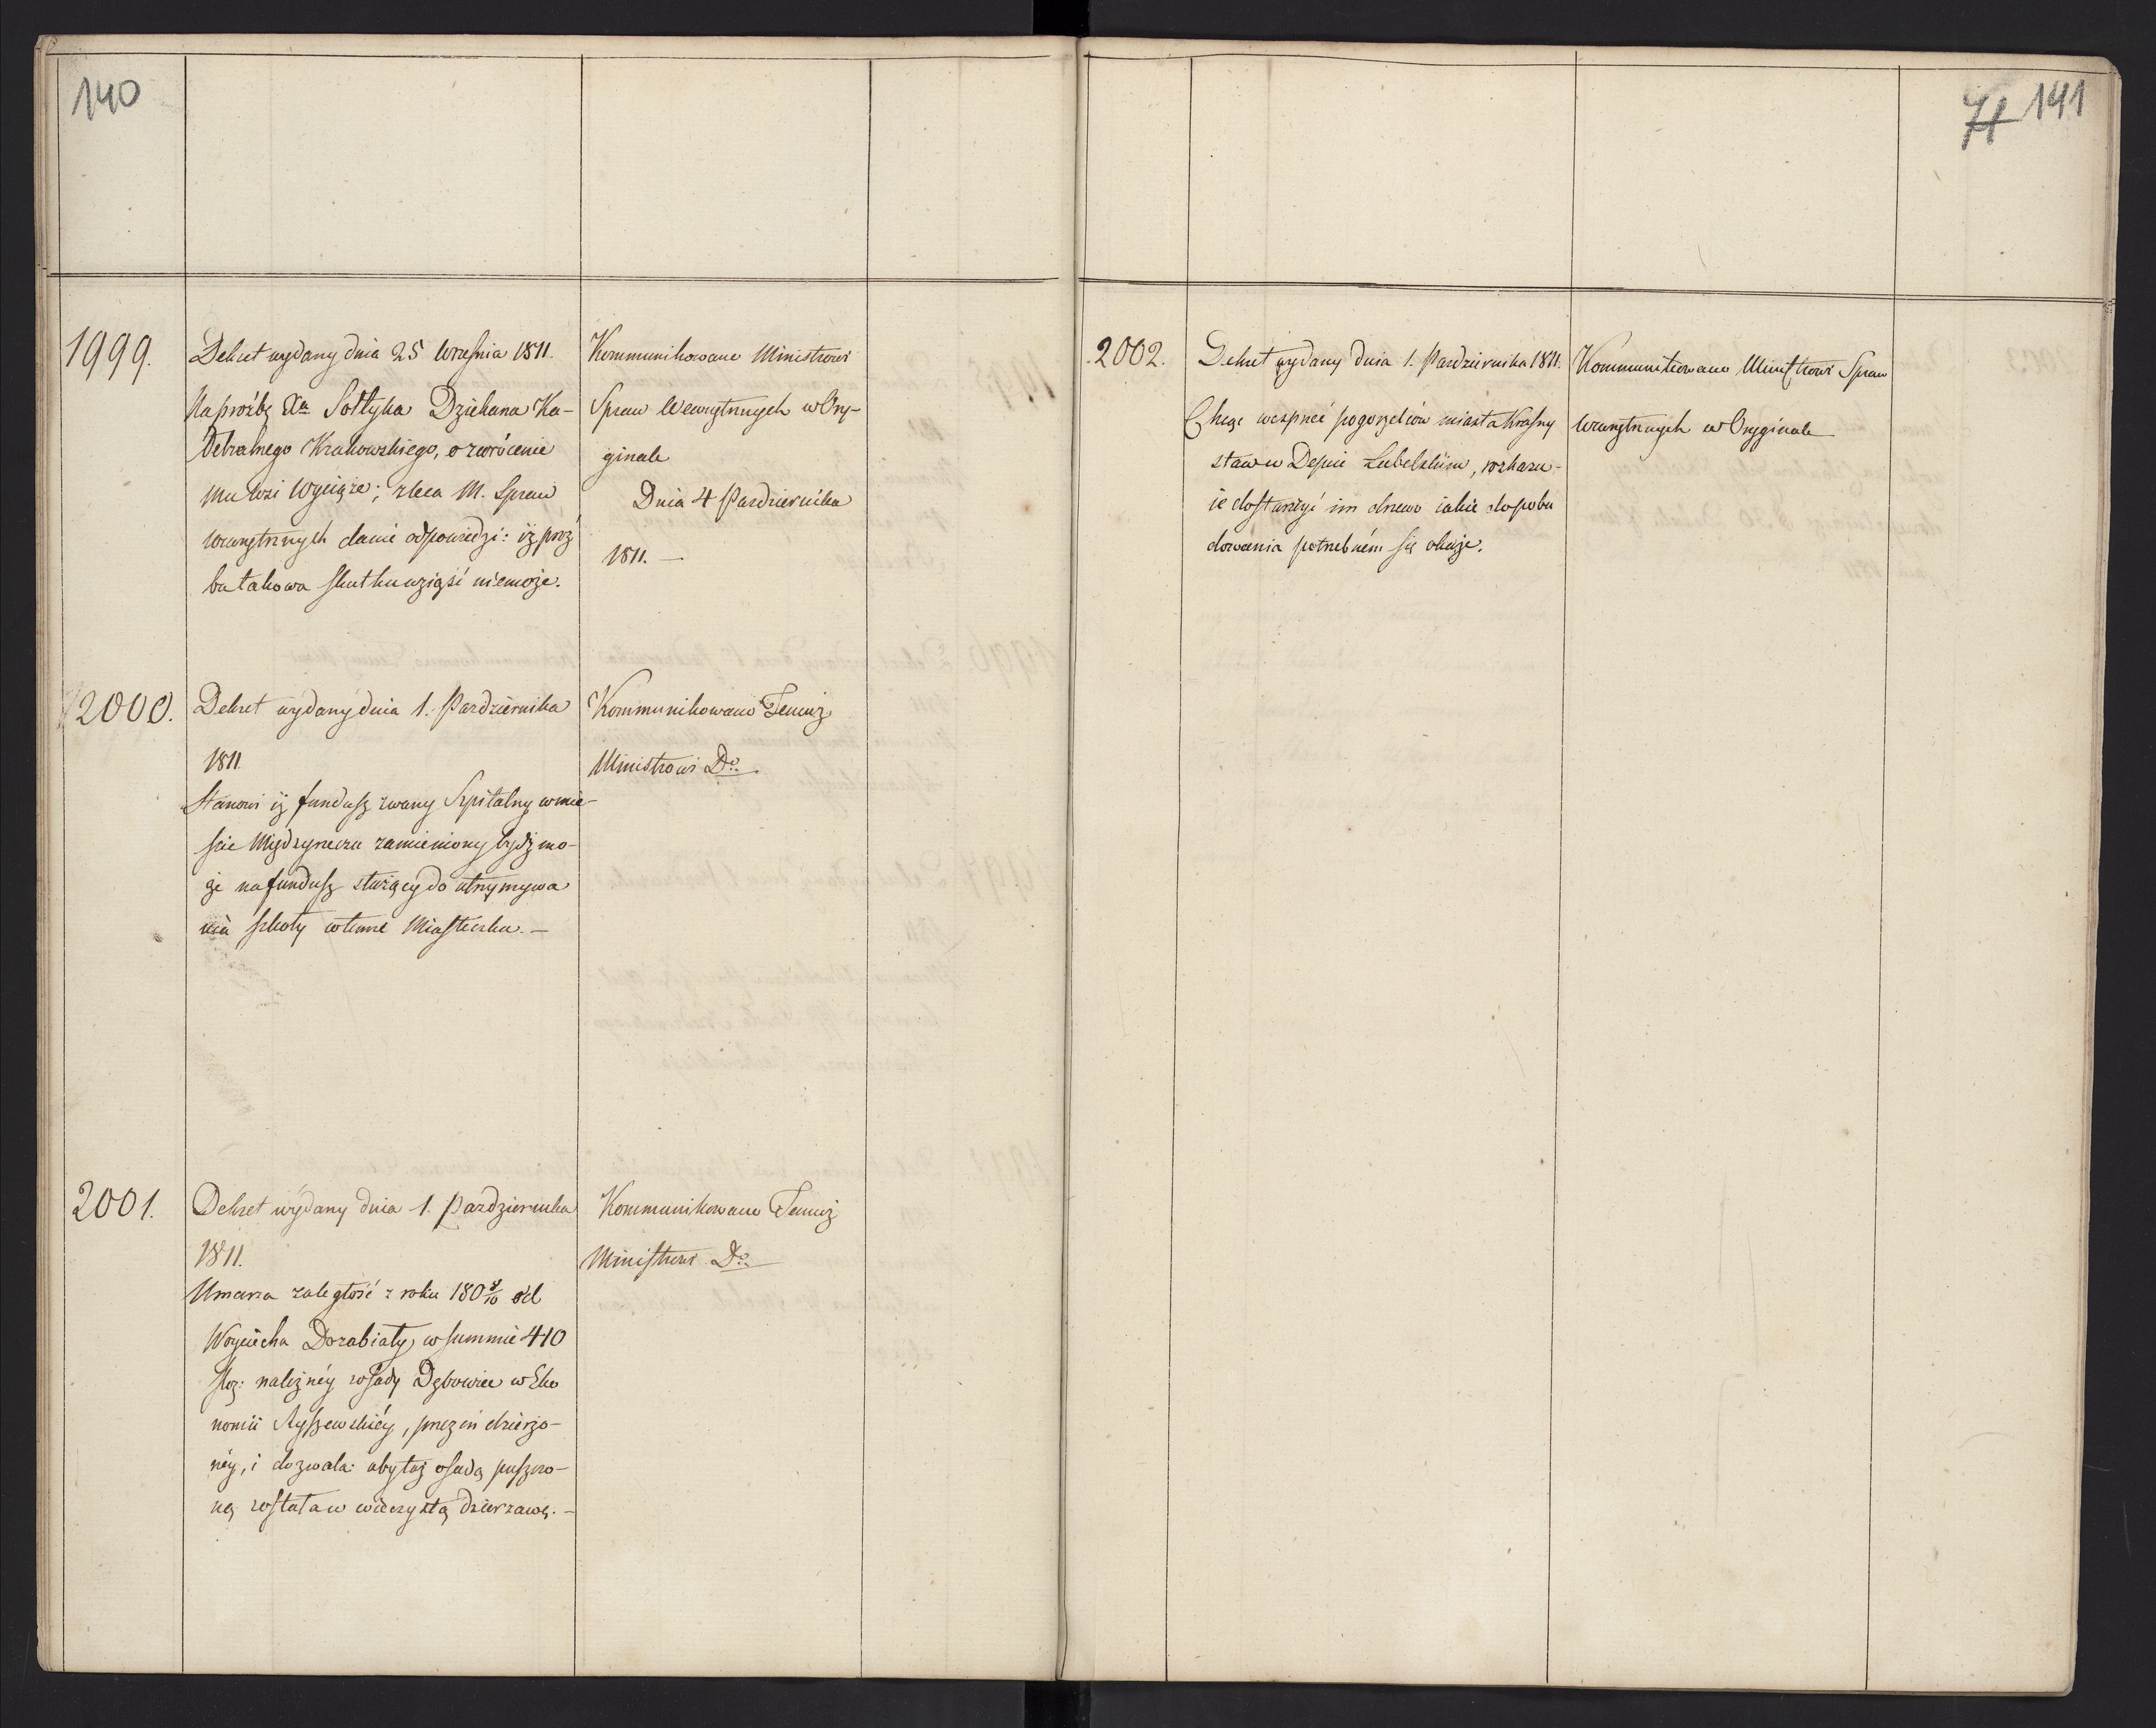 140
1999.
Dekret wydany dnia 25 Wrzesnia 1811.
Na proźbę Xa Sołtyka Dziekana Ka-
tedralnego Krakowskiego, o zwrócenie
mu wsi Wyciąże; zleca M. Spraw
wewnętrznych danie odpowiedzi: iż proź
ba takowa skutku wziąść niemoże.
Kommunikowano Ministrowi
Spraw Wewnętrznych w Ory-
ginale
Dnia 4 Pazdziernika
1811. —
2000.
Dekret wydany dnia 1. Pazdziernika
1811
Stanowi iż fundusz zwany Szpitalny w mie-
ście Międzyrzecu zamieniony bydź mo-
że na fundusz służący do utrzymywa
nia szkoły w temże Miasteczku. —
Kommunikowano Temuż
Ministrowi Do
2001.
Dekret wydany dnia 1. Pazdziernika
1811.
Umarza zaległość z roku 180 9/10 od
Woyciecha Dorabiały w summie 410
złp: należnéy z osady Dębowiec w Eko
nomii Ryszewskiéy, przezeń dzierżo-
néy, i dozwala: aby taż osada puszczo-
ną została w wieczystą dzierzawę. —
Kommunikowano Temuż
Ministrowi Do
71 141
2002.
Dekret wydany dnia 1. Pazdziernika 1811.
Chcąc wesprzeć pogorzelców miasta Krasny
staw w Depcie Lubelskim, rozkazu-
ie dostarczyć im drzewo iakie do pobu
dowania potrzebném się okaże.
Kommunikowano Ministrowi Spraw
Wewnętrznych w Oryginale